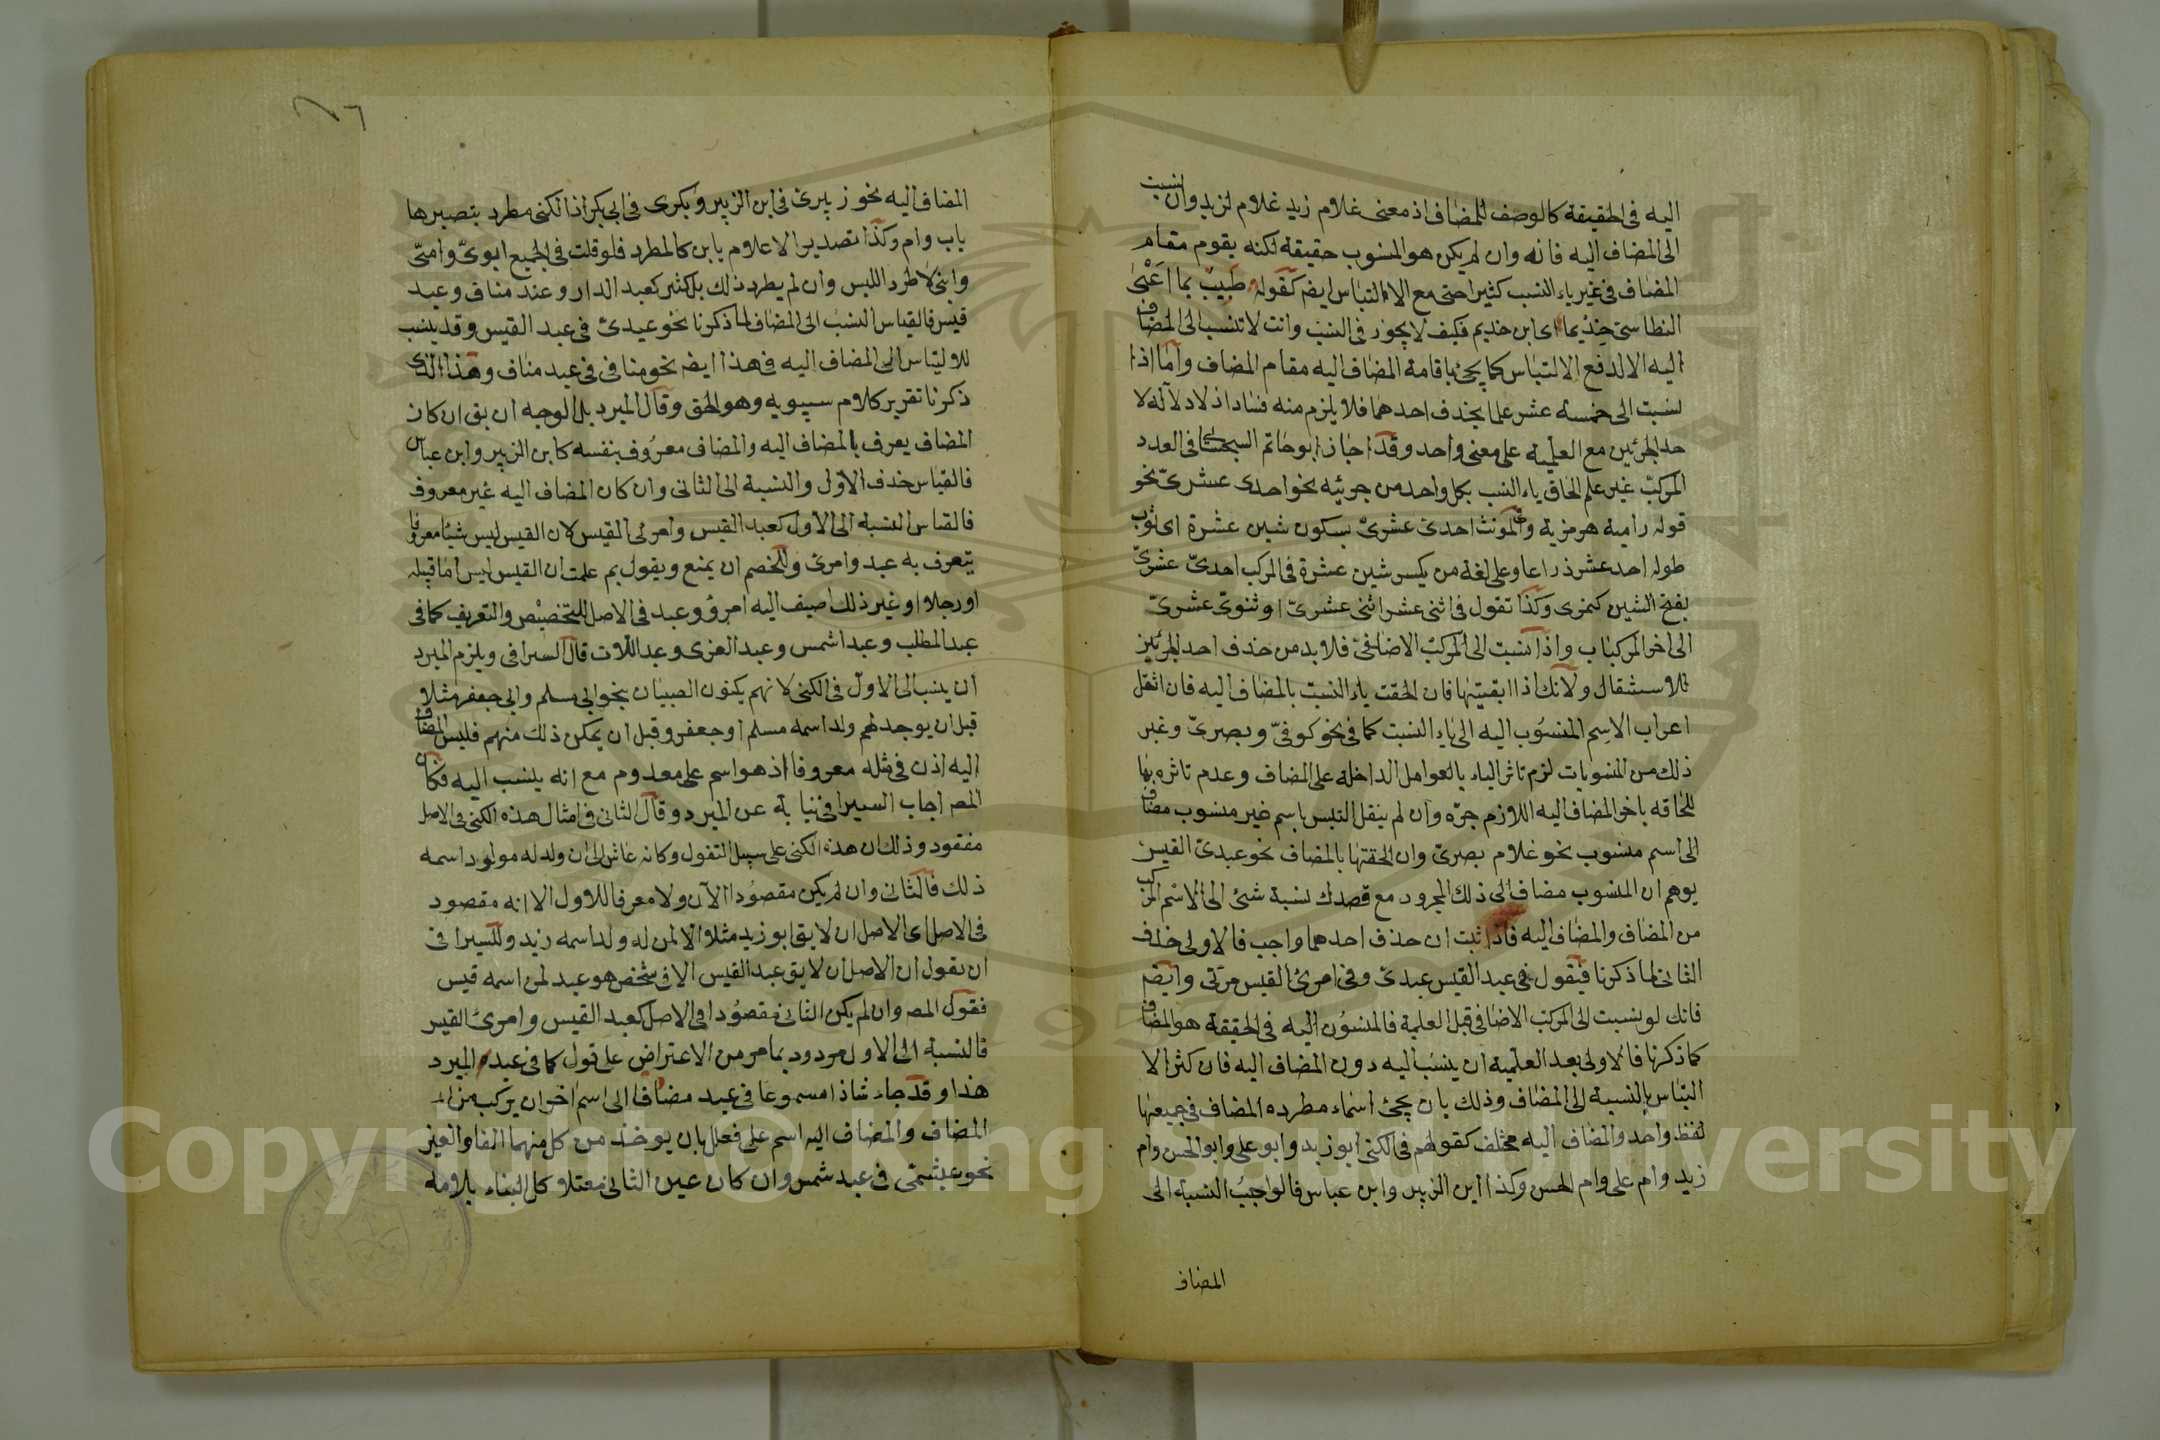 اليه فى الحقيقة كالوصف للمضاف اذ معنى غلام زيد غلام لزيد وان نسبت
الى المضاف اليه فانه وان لم يكن هو المنسوب حقيقة لكنه يقوم مقام
المضاف فى غير باب النسب كثيرا حتى مع الالتباس ايضا كقوله طبيب بما اعنى
النطاسى حذيما اى ابن حذيم فكيف لا يجوز فى النسب وانت لا تنسب الى المضاف
اليه الا لدفع الالتباس كما يجئ باقامة المضاف اليه مقام المضاف واما اذا
نسبت الى خمسة عشر علما بحذف احدهما فلا يلزم منه فساد اذ لا دلالة لا
حد الجزئين مع العلمية على معنى واحد وقد اجاز ابو حاتم السجستانى فى العدد
المركب غير علم الحاق ياء النسب بكل واحد من جزئيه نحو احدى عشرى نحو
قوله رامية هرمزية وفى المونث احدى عشرى بسكون شين عشرة اى ثوب
طوله احد عشر ذراعا وعلى لغة من يكسر شين عشرة فى المركب احدى عشرى
بفتح الشين كنمرى وكذا تقول فى اثنى عشر اثنى عشرى او ثنوى عشرى
الى اخر المركبات واذا نسبت الى المركب الاضافى فلا بد من حذف احد الجزئين
للاستثقال ولانك اذا ابقيتها فان الحقت ياء النسبت بالمضاف اليه فان انتقل
اعراب الاسم المنسوب اليه الى ياء النسبت كما فى نحو كوفى وبصرى وغير
ذلك من المنسوبات لزم تاثر الياء بالعوامل الداخلة على المضاف وعدم تاثره بها
للحاقه باخر المضاف اليه اللازم جره وان لم ينقل التبس باسم غير منسوب مضاف
الى اسم منسوب نحو غلام بصرى وان الحقتها بالمضاف نحو عبدى القيس
يوهم ان المنسوب مضاف الى ذلك المجرور مع قصدك نسبة شئ الى الاسم المركب
من المضاف والمضاف اليه فاذا ثبت ان حذف احدهما واجب فالاولى حذف
الثانى لما ذكرنا فيقول فى عبد القيس عبدى وفى امرئ القيس مرئى وايضا
فانك لو نسبت الى المركب الاضافى قبل العلمية فالمنسوب اليه فى الحقيقة هو المضاف
كما ذكرنا فالاولى بعد العلمية ان ينسب اليه دون المضاف اليه فان كثر الا
التباس بالنسبة الى المضاف وذلك بان يجئ اسماء مطرده المضاف فى جميعها
لفظ واحد والمضاف اليه مختلف كقولهم فى الكنى ابو زيد وابو على وابو الحسن وام
زيد وام على وام الحسن وكذا ابن الزبير وابن عباس فالواجب النسبة الى
المضاف
المضاف اليه نحو زبيرى فى ابن الزبير وبكرى فى ابى بكر اذ الكنى مطرد بتصديرها
باب وام وكذا تصدير الاعلام بابن كالمطرد فلو قلت فى الجميع ابوى وامى
وابنى لا طرد اللبس وان لم يطرد ذلك بل كثر كعبد الدار وعند مناف وعبد
قيس فالقياس النسب الى المضاف لما ذكرنا نحو عبدى فى عبد القيس وقد ينسب
للالتباس الى المضاف اليه فى هذا ايضا نحو منافى فى عبد مناف وهذا الذى
ذكرنا تقرير كلام سيبويه وهو الحق وقال المبرد بل الوجه ان يق ان كان
المضاف يعرف بالمضاف اليه والمضاف معروف بنفسه كابن الزبير وابن عباس
فالقياس حذف الاول والنسبة الى الثانى وان كان المضاف اليه غير معروف
فالقياس النسبة الى الاول كعبد القيس وامرئ القيس لان القيس ليس شيئا معروفا
يتعرف به عبد وامرئ وللخصم ان يمنع ويقول بم علمت ان القيس ليس اما قبيلة
او رجلا او غير ذلك اضيف اليه امرؤ وعبد فى الاصل للتخصيص والتعريف كما فى
عبد المطلب وعبد شمس وعبد العزى وعبد اللات قال السيرافى ويلزم المبرد
ان ينسب الى الاول فى الكنى لانهم يكنون الصبيان بنحو ابى مسلم وابى جعفر مثلا
قبل ان يوجد لهم ولد اسمه مسلم او جعفر وقبل ان يمكن ذلك منهم فليس المضاف
اليه اذن فى مثله معروفا اذ هو اسم على معدوم مع انه ينسب اليه فكان
المص اجاب السيرافى نيابة عن المبرد وقال الثانى فى امثال هذه الكنى فى الاصل
مقصود وذلك ان هذه الكنى على سبيل التفول وكانه عاش الى ان ولد له مولود اسمه
ذلك فالثانى وان لم يكن مقصودا الان ولا معرفا للاول الا انه مقصود
فى الاصل اى الاصل ان لا يق ابو زيد مثلا الا لمن له ولد اسمه زيد وللسيرافى
ان يقول ان الاصل ان لا يق عبد القيس الا فى شخص هو عبد لمن اسمه قيس
فقول المص وان لم يكن الثانى مقصودا فى الاصل كعبد القيس وامرئ القيس
فالنسبة الى الاول مردود بما مر من الاعتراض على قول كما فى عبد المبرد
هذا وقد جاء شاذا مسموعا فى عبد مضافا الى اسم اخر ان يركب من ا
المضاف والمضاف اليه اسم على فعلل بان يوخذ من كل منهما الفا والعين
نحو عبشمى فى عبد شمس وان كان عين الثانى معتلا كمل البناء بلامه
Copyright © King Saud University